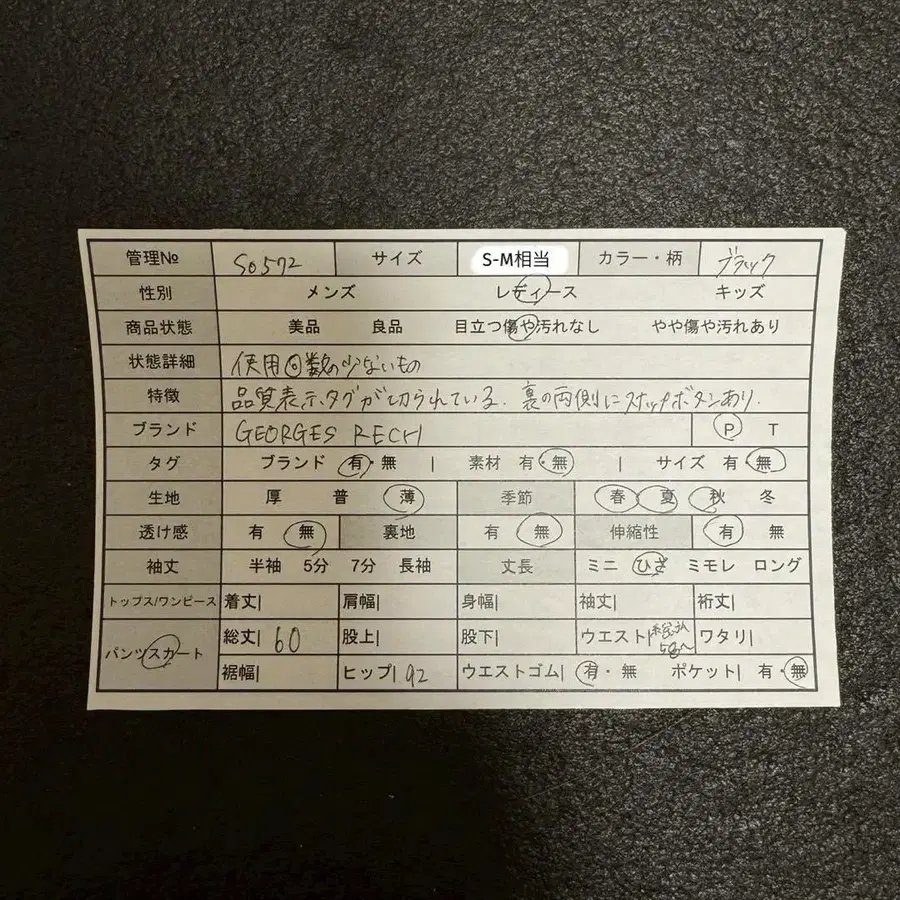 管理№ So572 サイズ S-M相当 カラー・柄 ブラック
性別 メンズ レディース キッズ
商品状態 美品 良品 目立つ傷や汚れなし やや傷や汚れあり
状態詳細 使用回数の少ないもの
特徴 品質表示タグが切られている。裏の両側にスナップボタンあり.
ブランド GEORGES RECH P T
タグ ブランド 有・無 | 素材 有・無 | サイズ 有・無
生地 厚 普 薄 季節 春 夏 秋 冬
透け感 有 無 裏地 有 無 伸縮性 有 無
袖丈 半袖 5分 7分 長袖 丈長 ミニ ひざ ミモレ ロング
トップス/ワンピース 着丈| 肩幅| 身幅| 袖丈| 裄丈|
パンツスカート 総丈| 60 股上| 股下| ウエスト| ワタリ|
裾幅| ヒップ| 92 ウエストゴム| 有・無 ポケット| 有・無